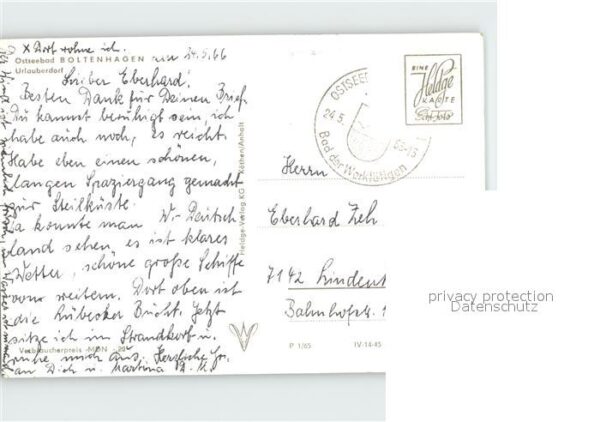 x Dort wohne ich.
Ostseebad BOLTENHAGEN
24.5.66
Urlauberdorf
Lieber Eberhard!
Besten Dank für Deinen Brief.
Du kannst beruhigt sein, ich
habe auch noch, es reicht.
Habe eben einen schönen,
langen Spaziergang gemacht
zur Steilküste.
Da konnte man W-Deutsch
land sehen, es ist klares
Wetter, schöne große Schiffe
vom weitem. Dort oben ist
die Lübecker Bucht. Jetzt
sitze ich im Strandkorb u.
ruhe mich aus. Herzliche Gr.
an Dich u. Martina
Verbraucherpreis MDN
Heldge-Verlag KG Köthen/Anhalt
EINE
Heldge
KARTE
OSTSEE
24.5.
Bad der Werktätigen
Herrn
Eberhard Zeh
7142 Lindent
Bahnhofstr. 1
P 1/65
IV-14-45
privacy protection
Datenschutz